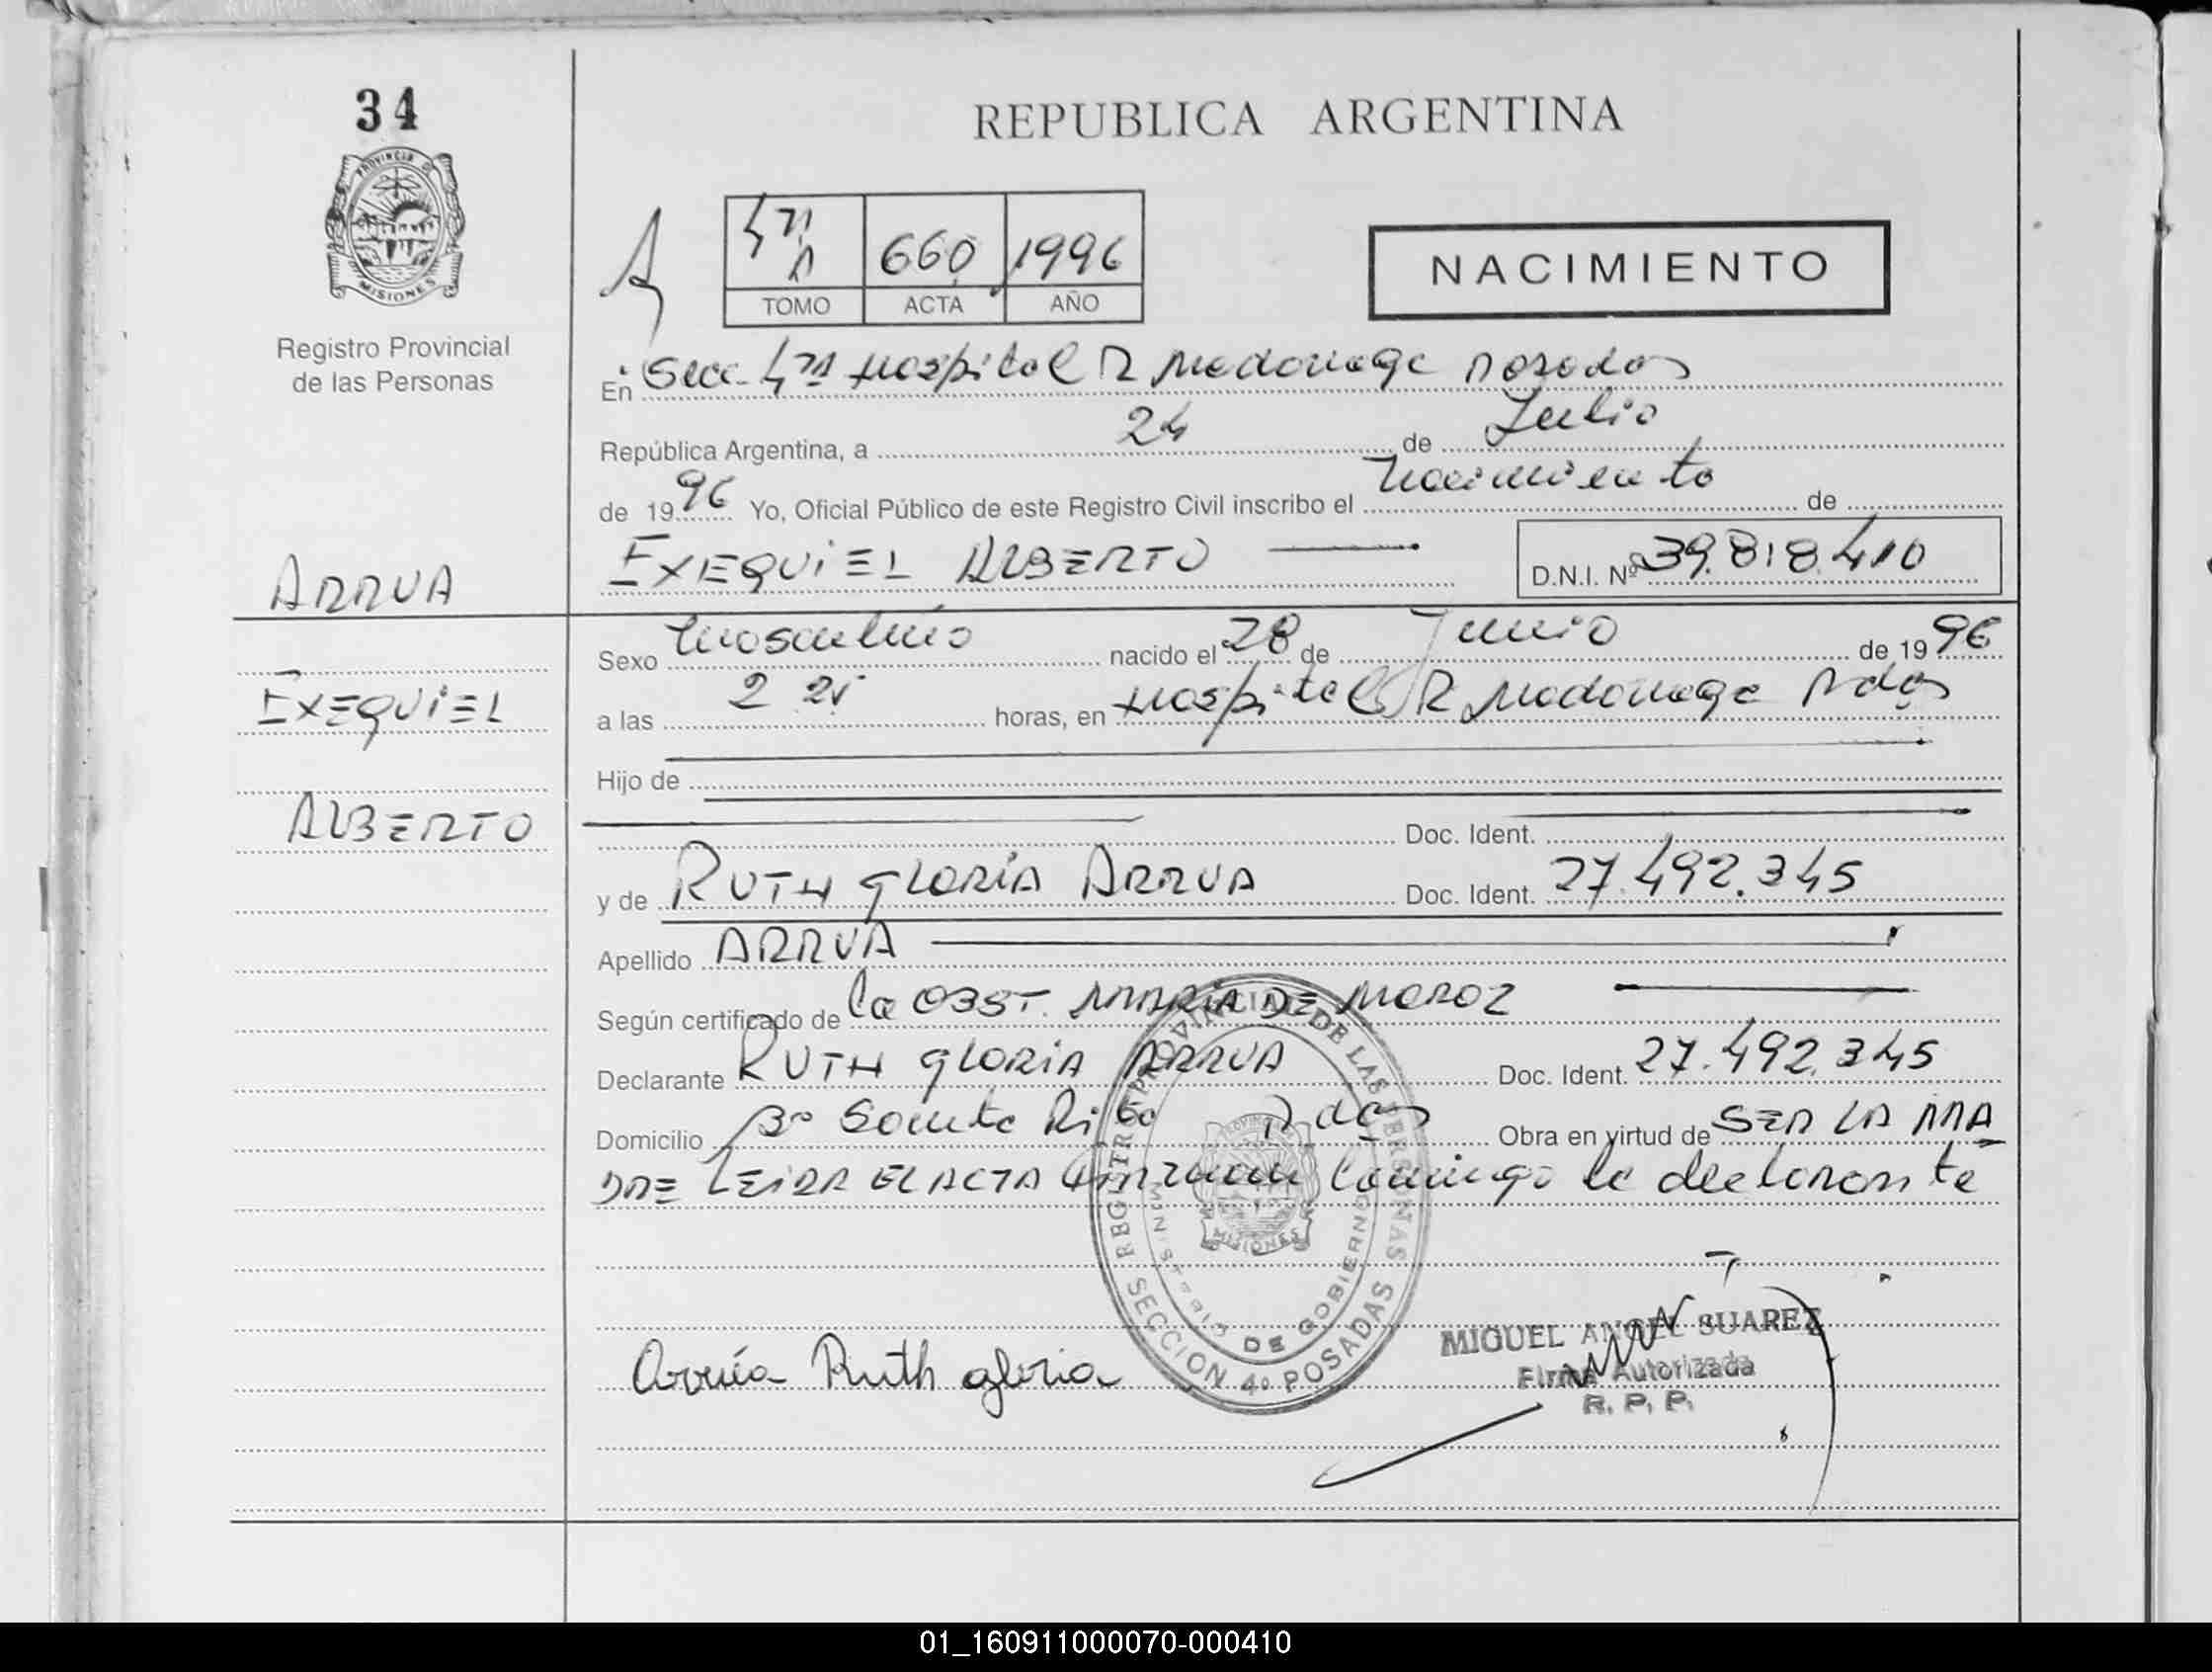 34
PROVINCIA D
MISIONES
Registro Provincial
de las Personas
ARRUA
EXEQUIEL
ALBERTO
REPUBLICA ARGENTINA
4ta A 660 1996
TOMO ACTA AÑO
NACIMIENTO
En Secc. 4ta Hospital R Madariaga Posadas
República Argentina, a 24 de Julio
de 1996 Yo, Oficial Público de este Registro Civil inscribo el Nacimiento de
EXEQUIEL ALBERTO D.N.I. Nº 39.818.410
Sexo Masculino nacido el 28 de Junio de 1996
a las horas, en Hospital R Madariaga Pdas
Hijo de
Doc. Ident.
y de RUTH GLORIA ARRUA Doc. Ident. 27.492.345
Apellido ARRUA
Según certificado de la OBST. MARIA DE MOROZ
Declarante RUTH GLORIA ARRUA Doc. Ident. 27.492.345
Domicilio Bº Santa Rita Pdas Obra en virtud de SER LA MA
DRE LEIDA EL ACTA Firman conmigo la declarante
REGISTRO PROVINCIAL DE LAS PERSONAS
MINISTERIO DE GOBIERNO
MISIONES
SECCION 4º POSADAS
Arrúa Ruth gloria
MIGUEL ANGEL SUAREZ
Firma Autorizada
R. P. P.
01_160911000070-000410